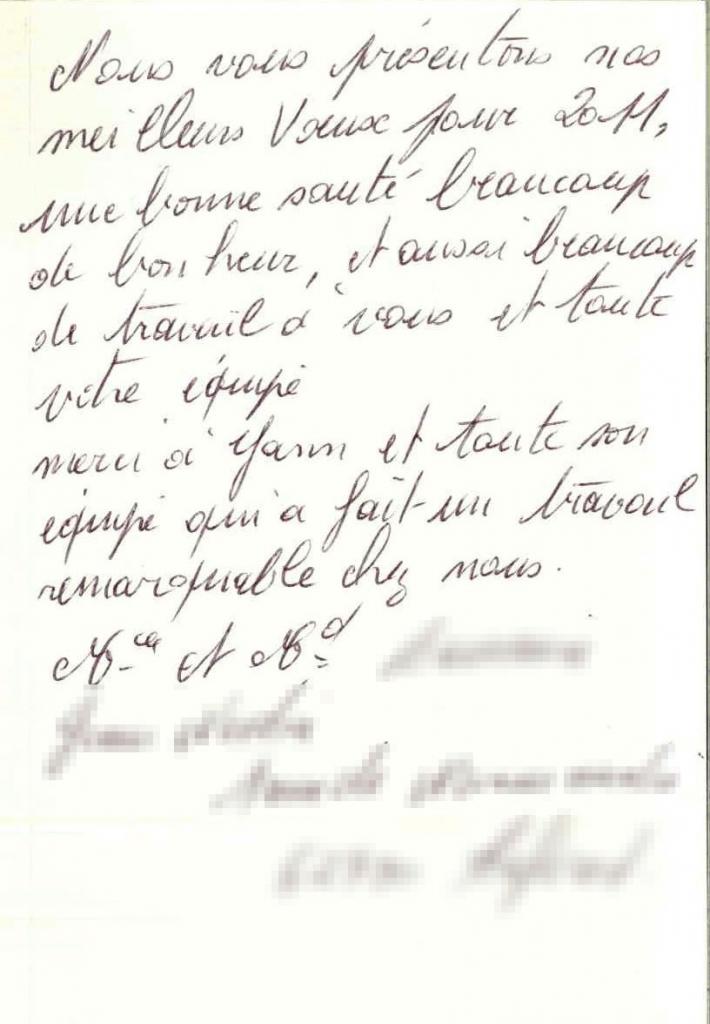 Nous vous présentons nos
meilleurs Vœux pour 2011,
une bonne santé beaucoup
de bonheur, et aussi beaucoup
de travail à vous et toute
votre équipe
merci à Yann et toute son
équipe qui a fait un travail
remarquable chez nous.
et